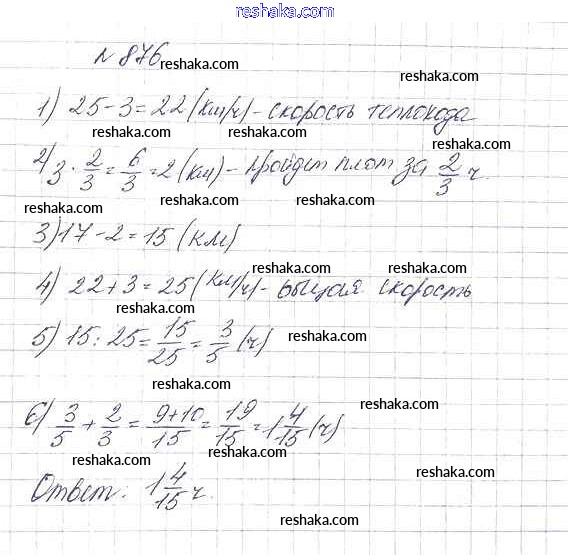 reshaka.com
N 876
reshaka.com
1) 25 - 3 = 22 (км/ч) - скорость теплохода
reshaka.com reshaka.com
2) 3 · 2/3 = 6/3 = 2 (км) - пройдет плот за 2/3 ч.
reshaka.com reshaka.com reshaka.com
3) 17 - 2 = 15 (км)
reshaka.com reshaka.com
4) 22 + 3 = 25 (км/ч) - общая скорость
reshaka.com
5) 15 : 25 = 15/25 = 3/5 (ч)
reshaka.com
reshaka.com
6) 3/5 + 2/3 = 9+10/15 = 19/15 = 1 4/15 (ч)
reshaka.com
reshaka.com reshaka.com
Ответ: 1 4/15 ч.
reshaka.com
reshaka.com